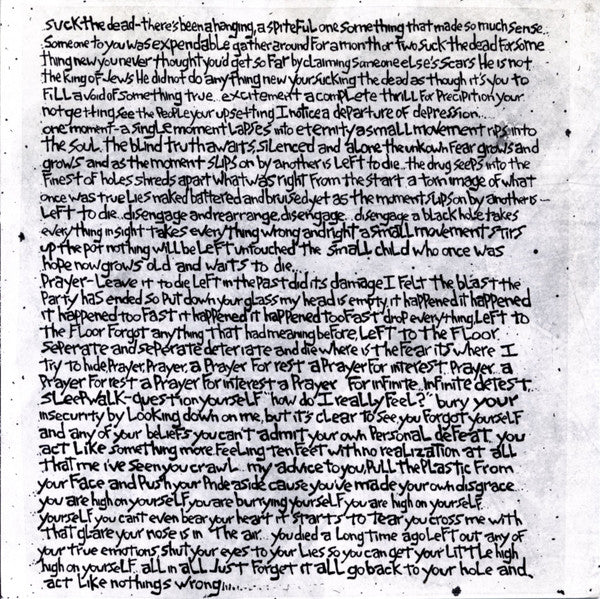 suck the dead-there's been a hanging, a spiteful one something that made so much sense..
Someone to you was expendable gather around for a month or two suck the dead for some
thing new you never thought you'd get so far by claiming someone else's scars He is not
the King of Jews He did not do anything new your sucking the dead as though it's you to
fill a void of something true... excitement a complete thrill for Precipition your
not getting see the People your upsetting I notice a departure of depression......
one moment-a single moment lapses into eternity a small movement rips into
the soul. the blind truth awaits, silenced and alone the unkown fear grows and
grows and as the moment slips on by another is left to die...the drug seeps into the
finest of holes shreds apart what was right from the start a torn image of what
once was true lies naked battered and bruised yet as the moment slips on by another is-
left to die...disengage and rearrange, disengage...disengage a black hole takes
everything in sight takes everything wrong and right a small movement stirs
up the pot nothing will be left untouched the small child who once was
hope now grows old and waits to die...
Prayer-Leave it to die left in the past did its damage I felt the blast the
Party has ended so put down your glass my head is empty, it happened it happened
it happened too fast it happened it happened too fast drop everything, left to
the floor Forgot anything that had meaning before, left to the floor
seperate and seperate deteriate and die where is the fear its where I
try to hide Prayer, Prayer, a Prayer for rest a Prayer for interest. Prayer...a
Prayer for rest a Prayer for interest a Prayer for infinite.. infinite detest...
sleepwalk-question yourself "how do I really feel?" bury your
insecurity by looking down on me, but it's clear to see, you forgot yourself
and any of your beliefs you can't admit your own Personal defeat you
act like something more. Feeling ten feet with no realization at all
that me i've seen you crawl... my advice to you, Pull the Plastic from
your face and Push your Pride aside cause you've made your own disgrace
you are high on yourself you are burrying yourself you are high on yourself..
yourself you can't even bear your heart it starts to tear, you cross me with
that glare your nose is in the air... you died a long time ago left out any of
your true emotions, shut your eyes to your lies so you can get your little high,
high on yourself... all in all just forget it all go back to your hole and
act like nothings wrong............